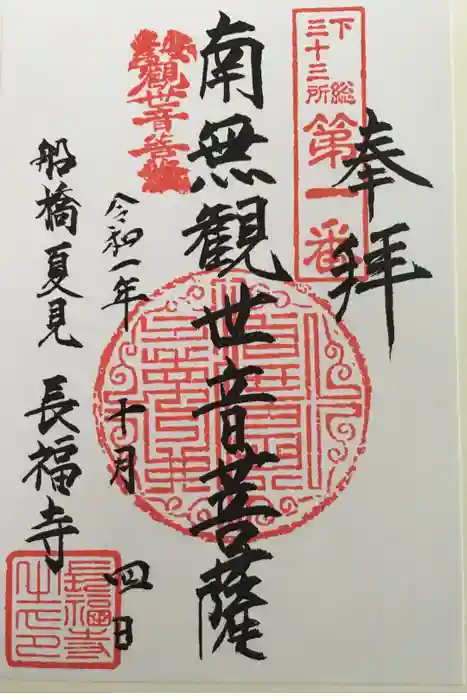 奉拝
下総
三十三所
第一番
南無観世音菩薩
觀世音菩薩
令和一年十月四日
船橋夏見 長福寺
長福寺之印